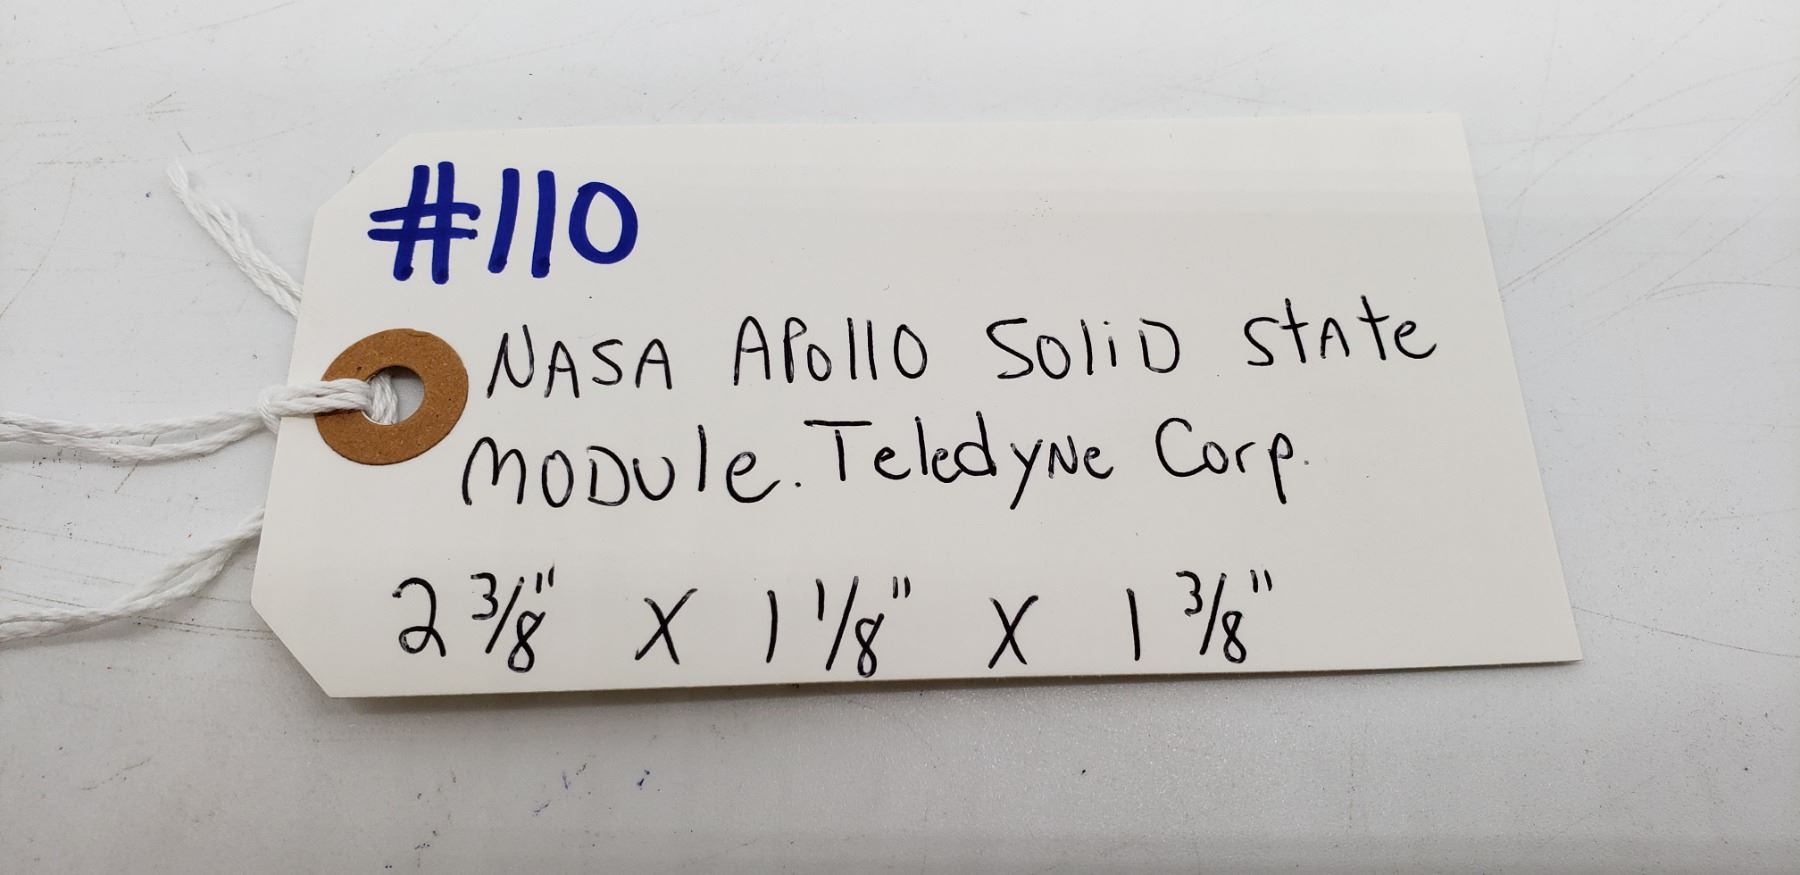 #110
NASA Apollo Solid State
Module. Teledyne Corp.
2 3/8" x 1 1/8" x 1 3/8"